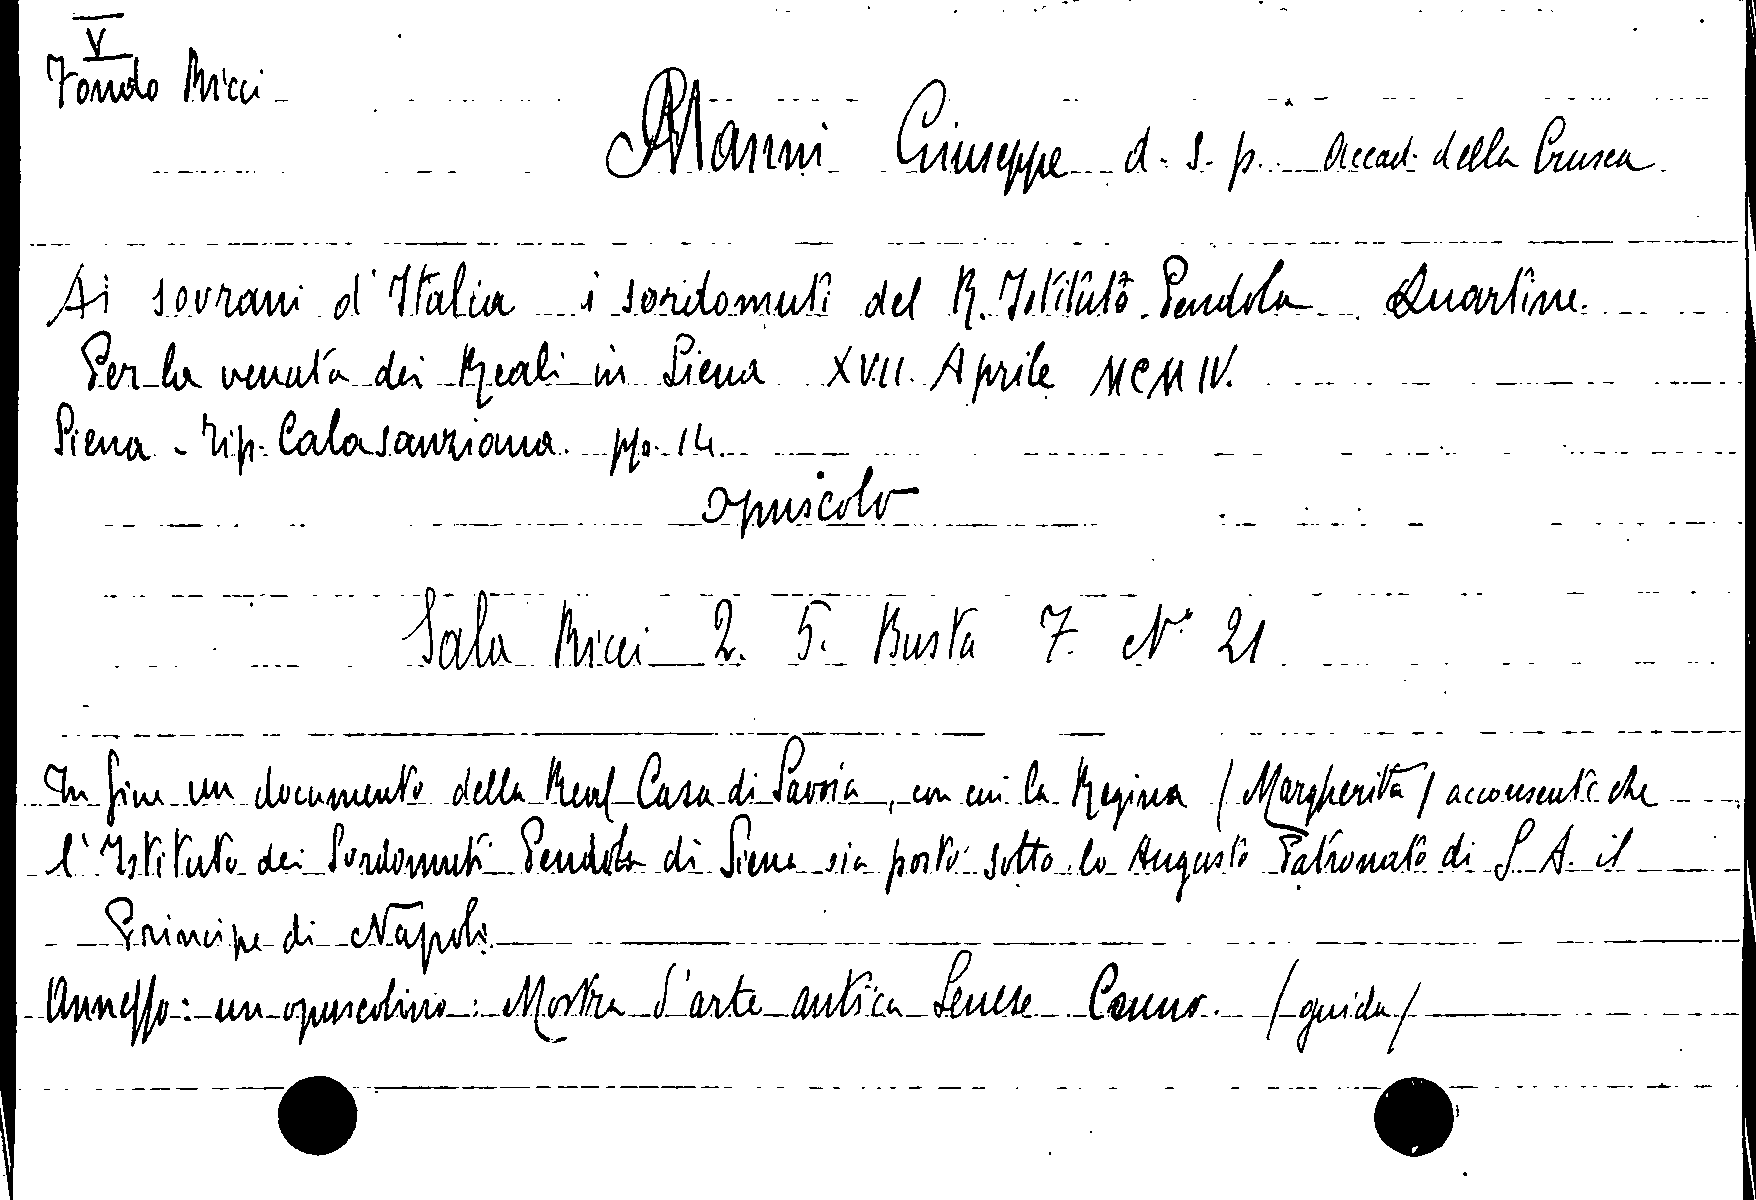 V
Fondo Ricci
Manni Giuseppe d. s. p. Accad. della Crusca
Ai sovrani d'Italia i sordomuti del R. Istituto Pendola Quartine.
Per la venuta dei Reali in Siena XVII. Aprile MCMIV.
Siena - Tip. Calasanziana. pp. 14
opuscolo
Sala Ricci 2. 5. Busta 7. N° 21
In fine un documento della Real Casa di Savoia, con cui la Regina / Margherita / acconsente che
l'Istituto dei Sordomuti Pendola di Siena sia posto sotto lo Augusto Patronato di S. A. il
Principe di Napoli.
Annesso: un opuscolino: Mostra d'arte antica Senese / guida /